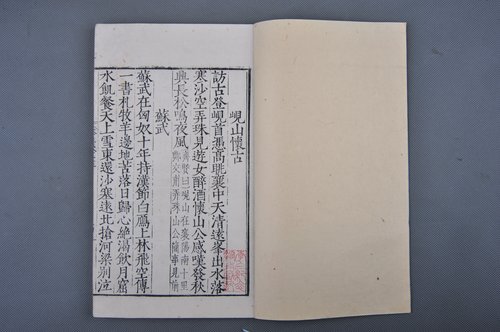 峴山懷古
訪古登峴首憑高眺襄中天清遠峯出水落
寒沙空弄珠見遊女醉酒懷山公感嘆發秋
興長松鳴夜風
蘇武
蘇武在匈奴十年持漢節白鴈上林飛空傳
一書札牧羊邊地苦落日歸心絶渴飲月窟
水飢餐天上雪東還沙塞遠北愴河梁别泣